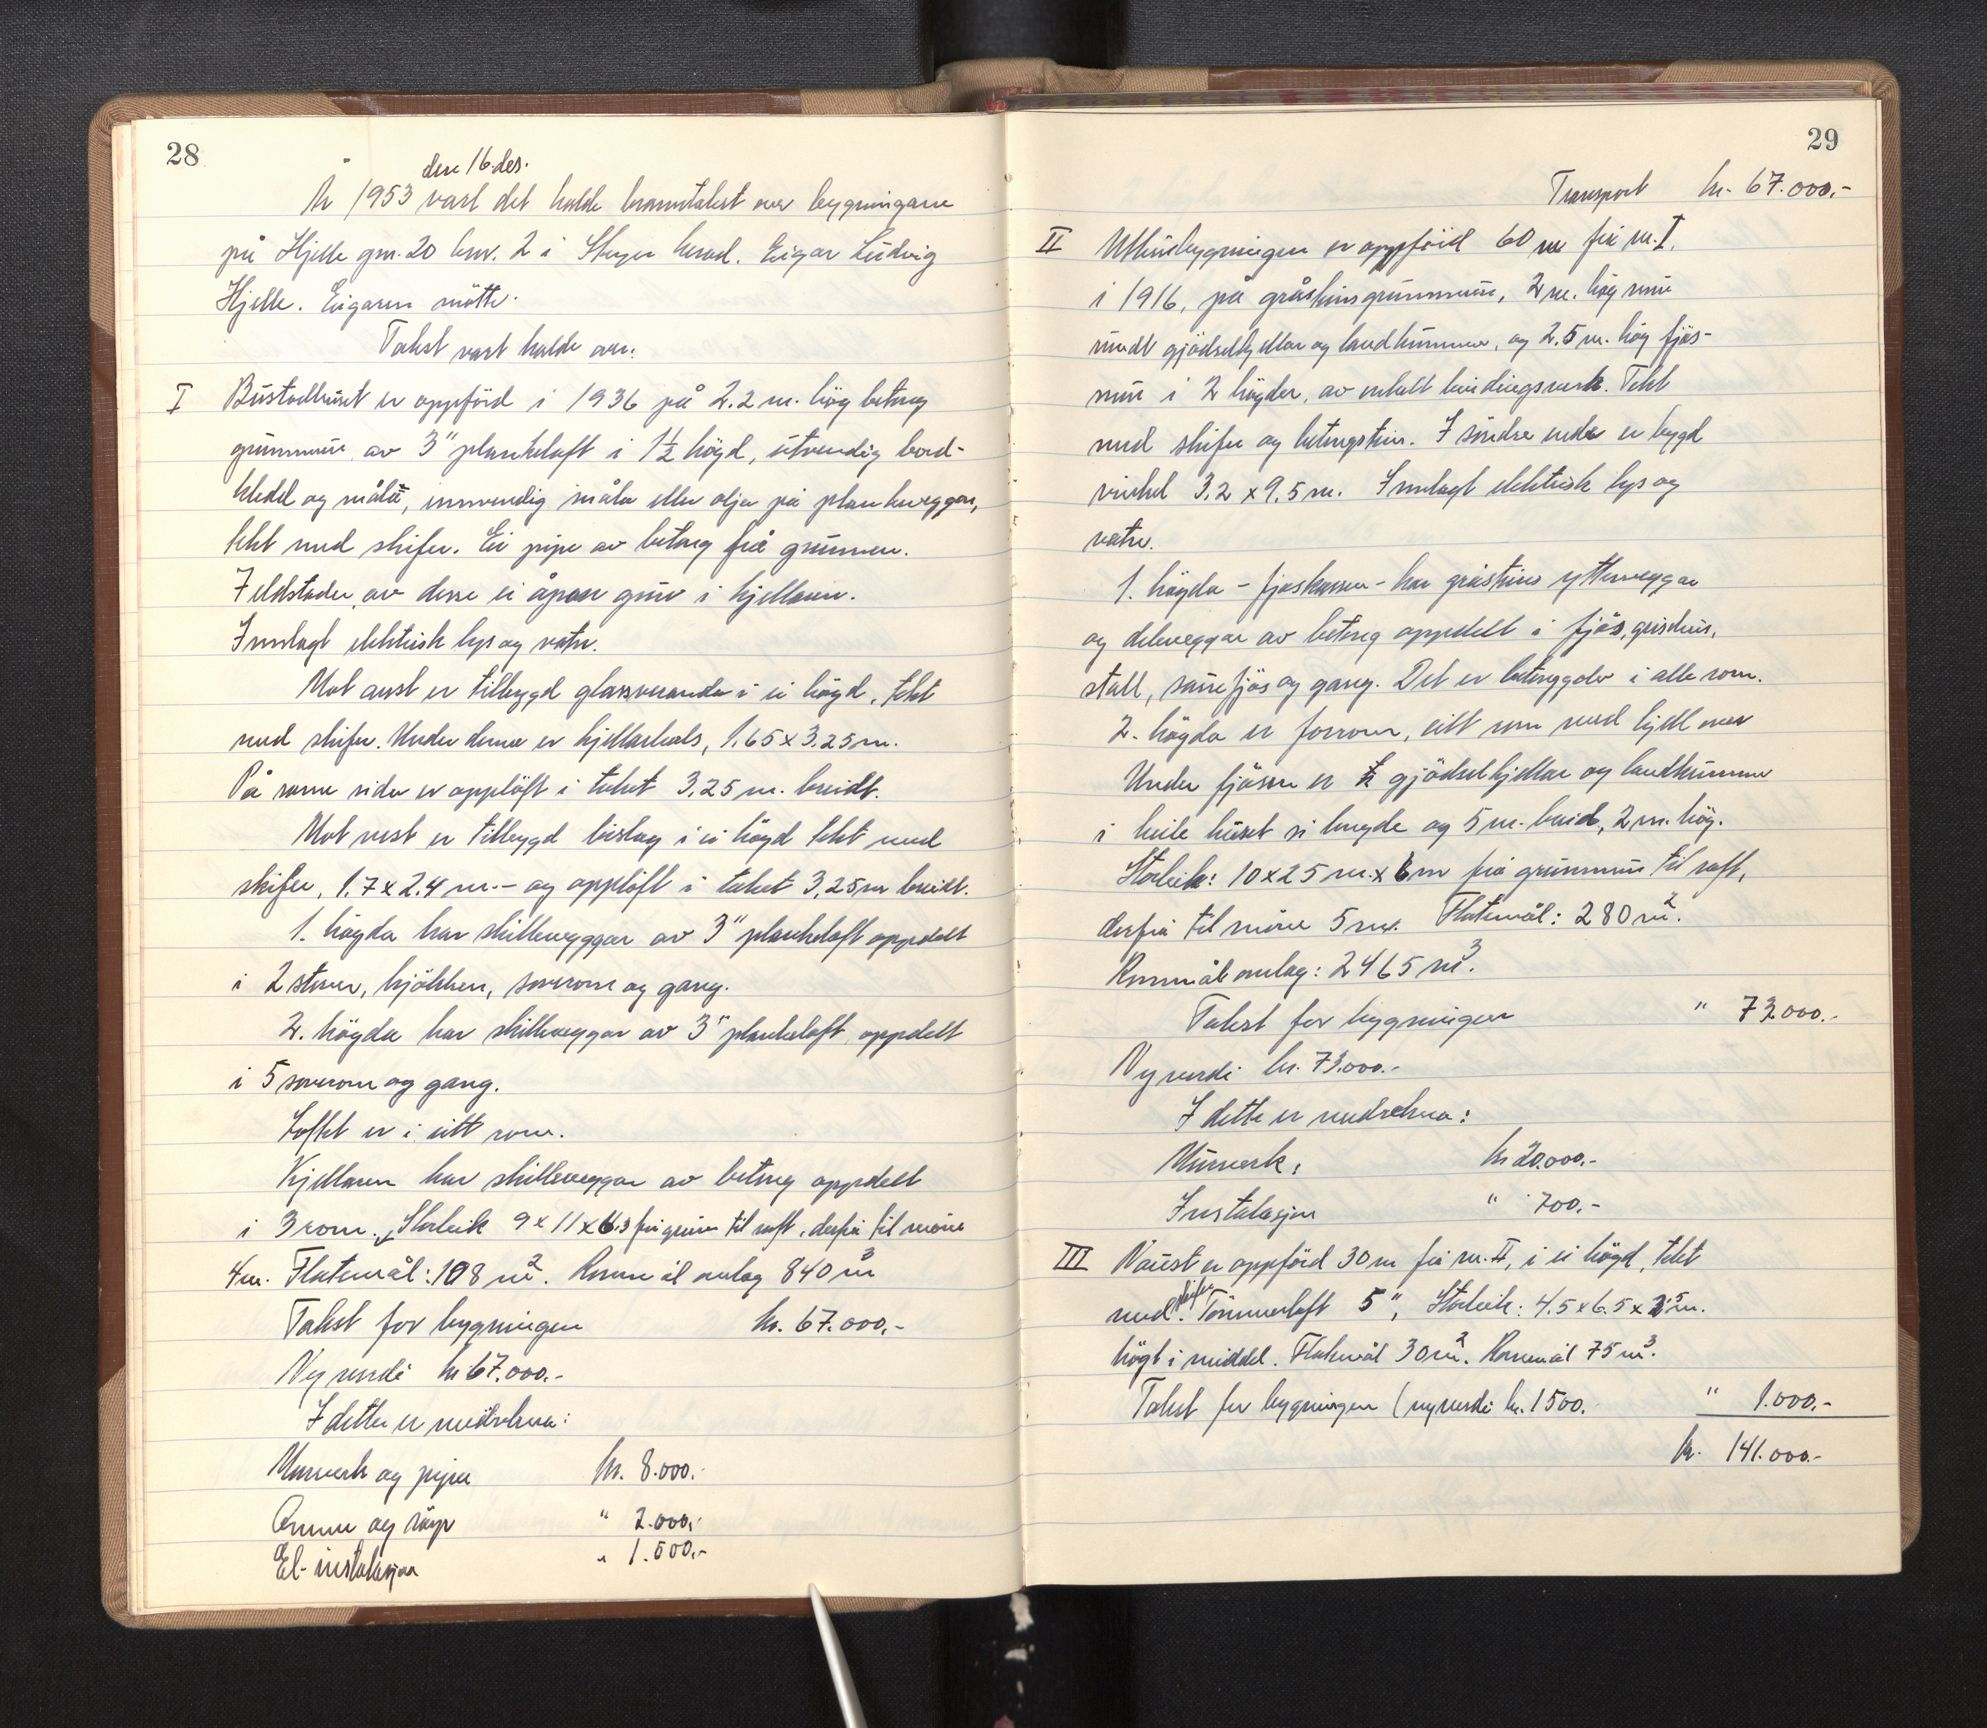 28
den 16. des.
År 1953 vart det halde branntakst over bygningane
på Hjelle gnr. 20 bnr. 2 i Stryn herad. Eigar Ludvig
Hjelle. Eigaren møtte.
Takst vart halde over:
I Bustadhuset er oppförd i 1936 på 2.2 m. hög betong
grunnmur, av 3" plankeloft i 1½ högd, utvendig bord-
kledd og måla, innvendig måla eller olja på plankeveggar,
tekt med skifer. Ei pipe av betong frå grunnen.
7 eldstader, av desse ei åpen gruv i kjellaren.
Innlagt elektrisk lys og vatn.
Mot aust er tilbygd glassveranda i ei högd, tekt
med skifer. Under denne er kjellarhals, 1.65 x 3.25 m.
På same sida er opplöft i taket 3,25 m. breidt.
Mot vest er tilbygd bislag i ei högd tekt med
skifer, 1.7 x 2.4 m. – og opplöft i taket 3,25 m breidt.
1. högda har skilleveggar av 3" plankeloft oppdelt
i 2 stover, kjökken, soverom og gang.
2. högda har skilleveggar av 3" plankeloft oppdelt
i 5 soverom og gang.
Loftet er i eitt rom.
Kjellaren har skilleveggar av betong oppdelt
i 3 rom. Storleik 9 x 11 x 6.3 frå grunn til raft, derfrå til möne
4 m. Flatemål: 108 m². Rommål omlag 840 m³
Takst for bygningen kr. 67.000,-
Ny verdi kr 67.000.-
I dette er medrekna:
Murverk og pipe kr. 8.000.-
Omnar og röyr " 2.000,-
El-instalasjon " 1.500,-
29
Transport kr. 67.000.-
II Uthusbygningen er oppförd 60 m frå nr. I.
i 1916, på gråsteinsgrunnmur, 2 m. hög mur
rundt gjödselkjellar og landkummen, og 2.5 m. hög fjös-
mur i 2 högder, av enkelt bindingsverk. Tekt
med skifer og betongstein. I söndre ende er bygd
vinkel 3.2 x 9.5 m. Innlagt elektrisk lys og
vatn.
1. högda – fjoskassen – har gråsteins yttervegger
og deleveggar av betong oppdelt i fjös, grisehus,
stall, sauefjös og gang. Det er betonggolv i alle rom.
2. högda er forrom, eitt rom med hjell over
Under fjösen er gjödselkjellar og landkumme
i heile huset si lengde og 5 m. breid, 2 m. hög.
Storleik: 10 x 25 m. x 6 m frå grunnmur til raft,
derfrå til möne 5 m. Flatemål: 280 m².
Rommål omlag: 2465 m³.
Takst for bygningen " 73.000.-
Ny verdi kr. 73.000.-
I dette er medrekna:
Murverk: kr 20.000.-
Instalasjon " 700.-
III Naust er oppförd 30 m frå nr. II, i ei högd, tekt
med skifer. Tömmerloft 5", Storleik: 4.5 x 6.5 x 2.5 m.
högt i middel. Flatemål 30 m². Rommål 75 m³.
Takst for bygningen (nyverdi kr. 1500. " 1.000.-
kr. 141.000.-